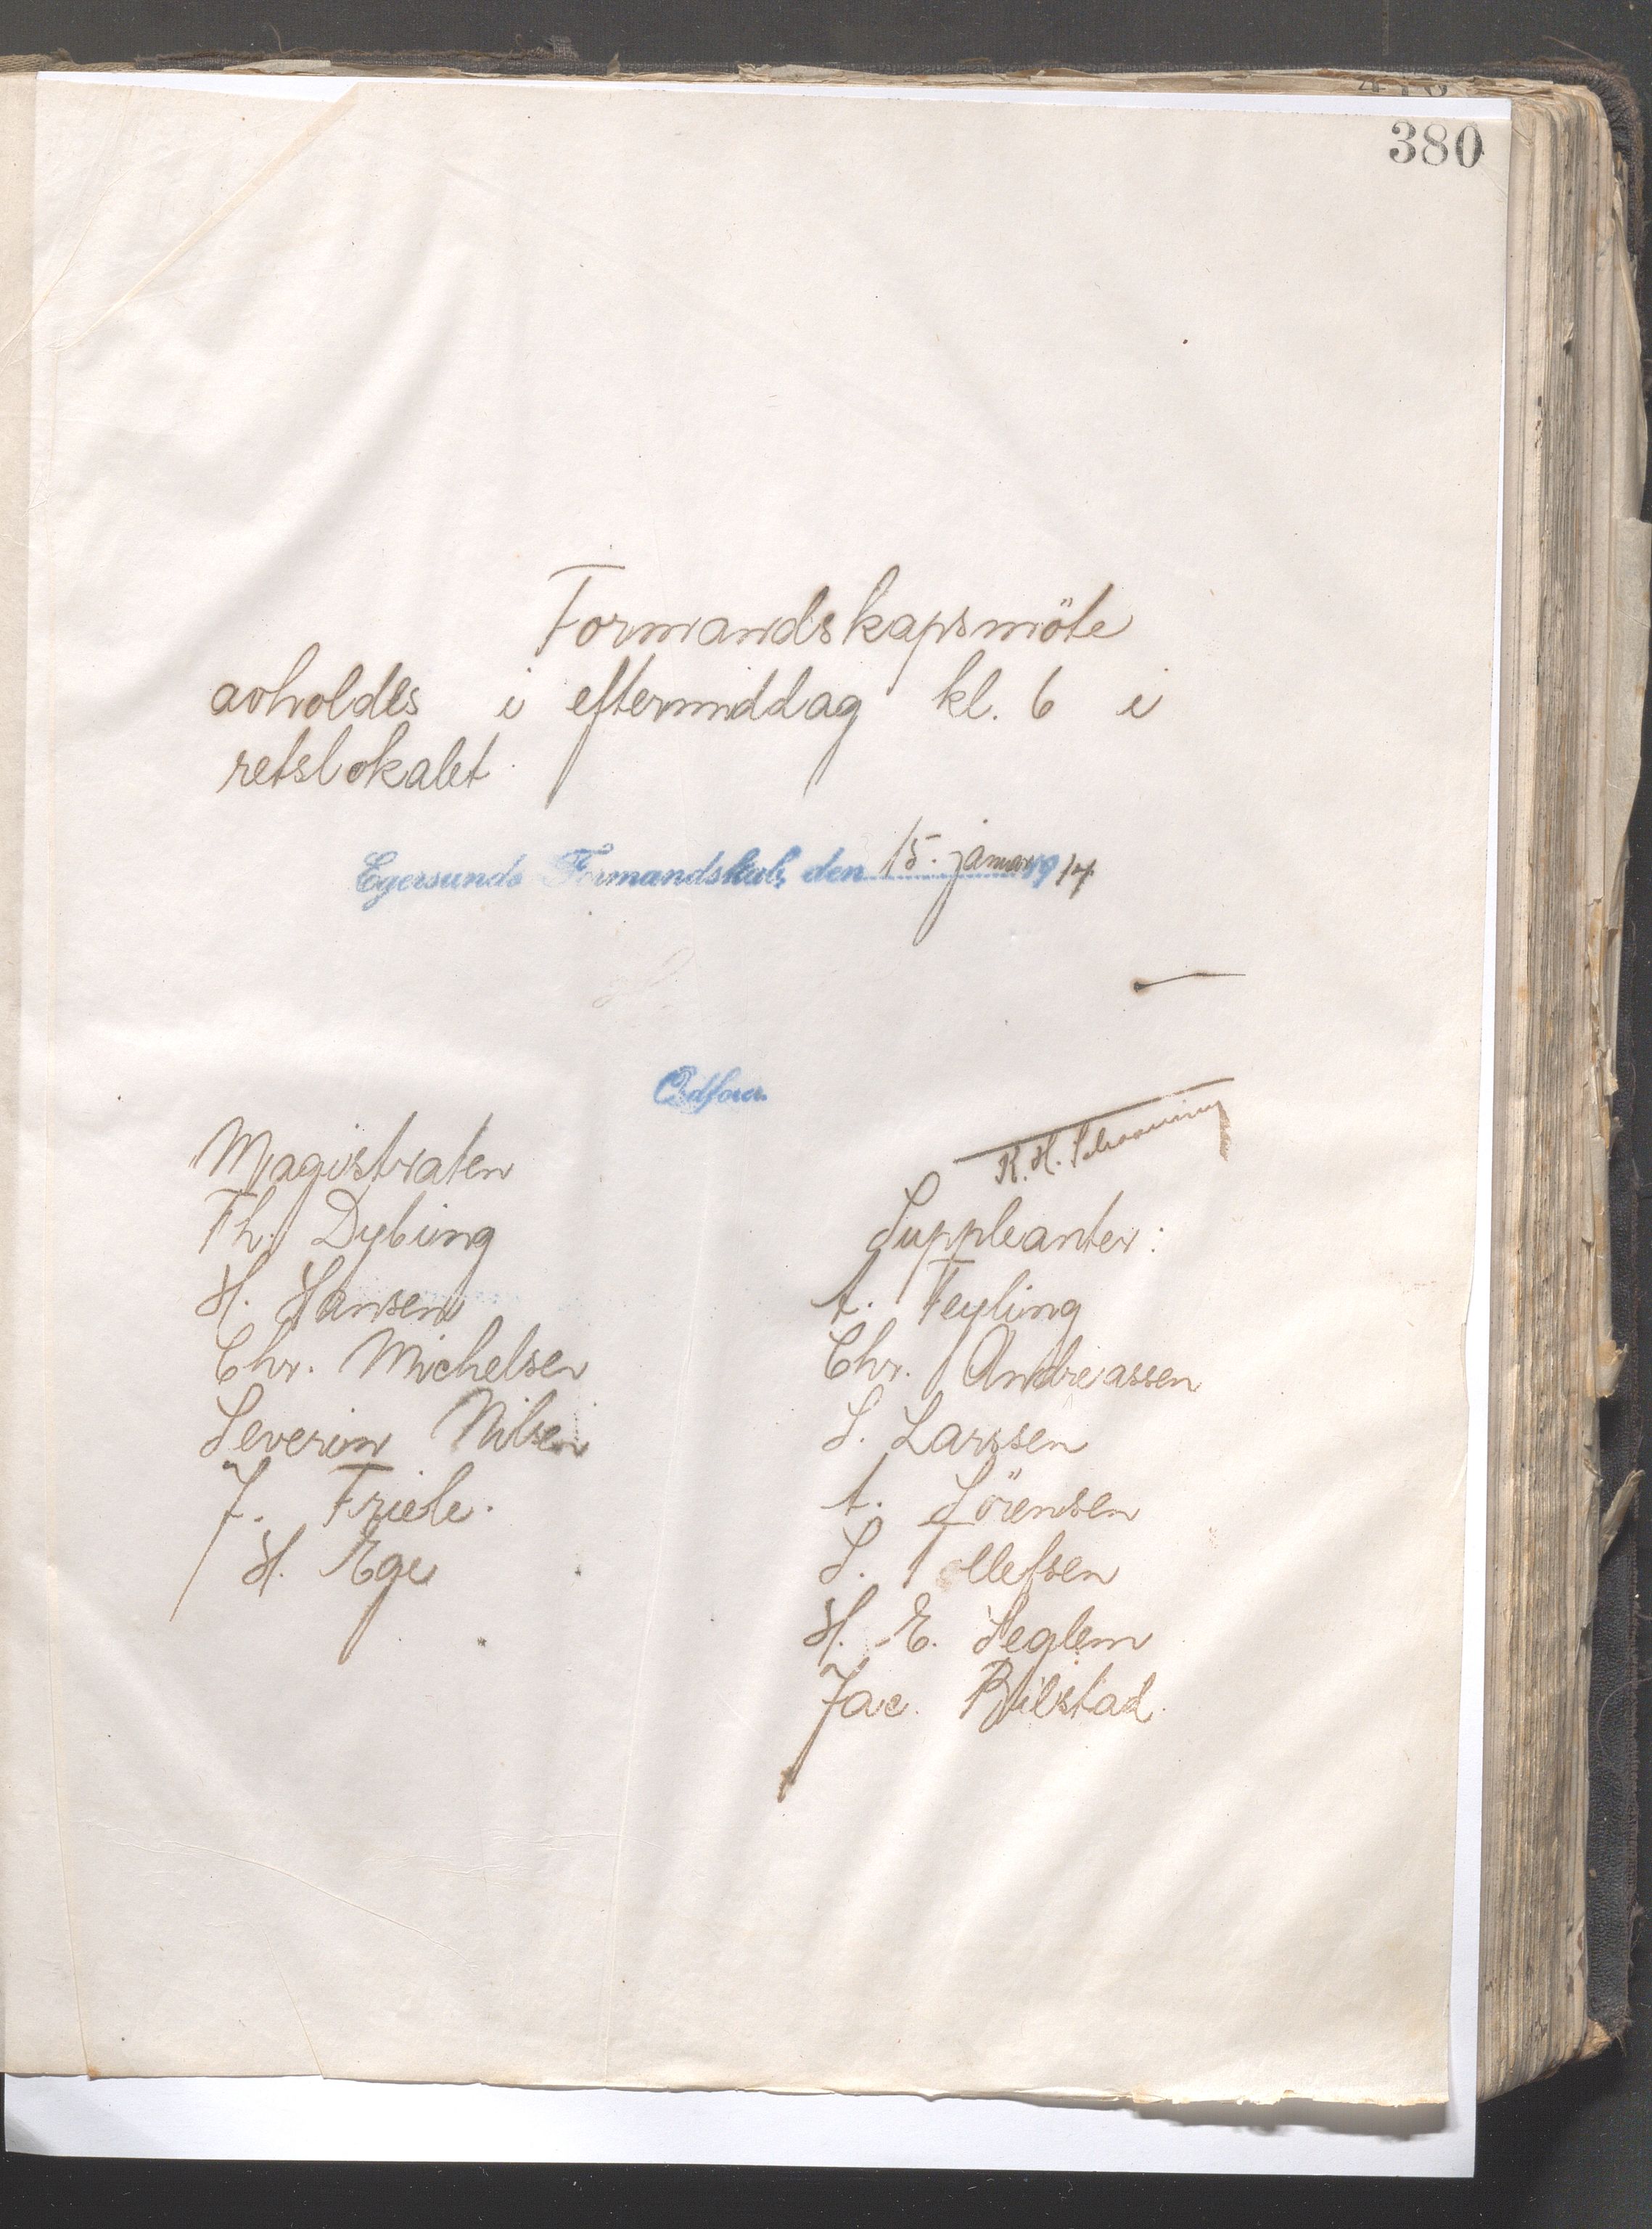 380
Formandskapsmöte
avholdes i eftermiddag kl. 6 i
retslokalet.
Egersunds Formandskab, den 15. januar 1914.
Ordfører.
Magistraten
Th. Dybing
H. Hansen
Chr. Michelsen
Severin Nilsen
J. Friele.
H. Ege
R. H. Schrøning
Suppleanter:
A. Feyling
Chr. Andreassen
S. Larssen
A. Sörensen
S. Tollefsen
H. E. Seglem
Jac. Bilstad.